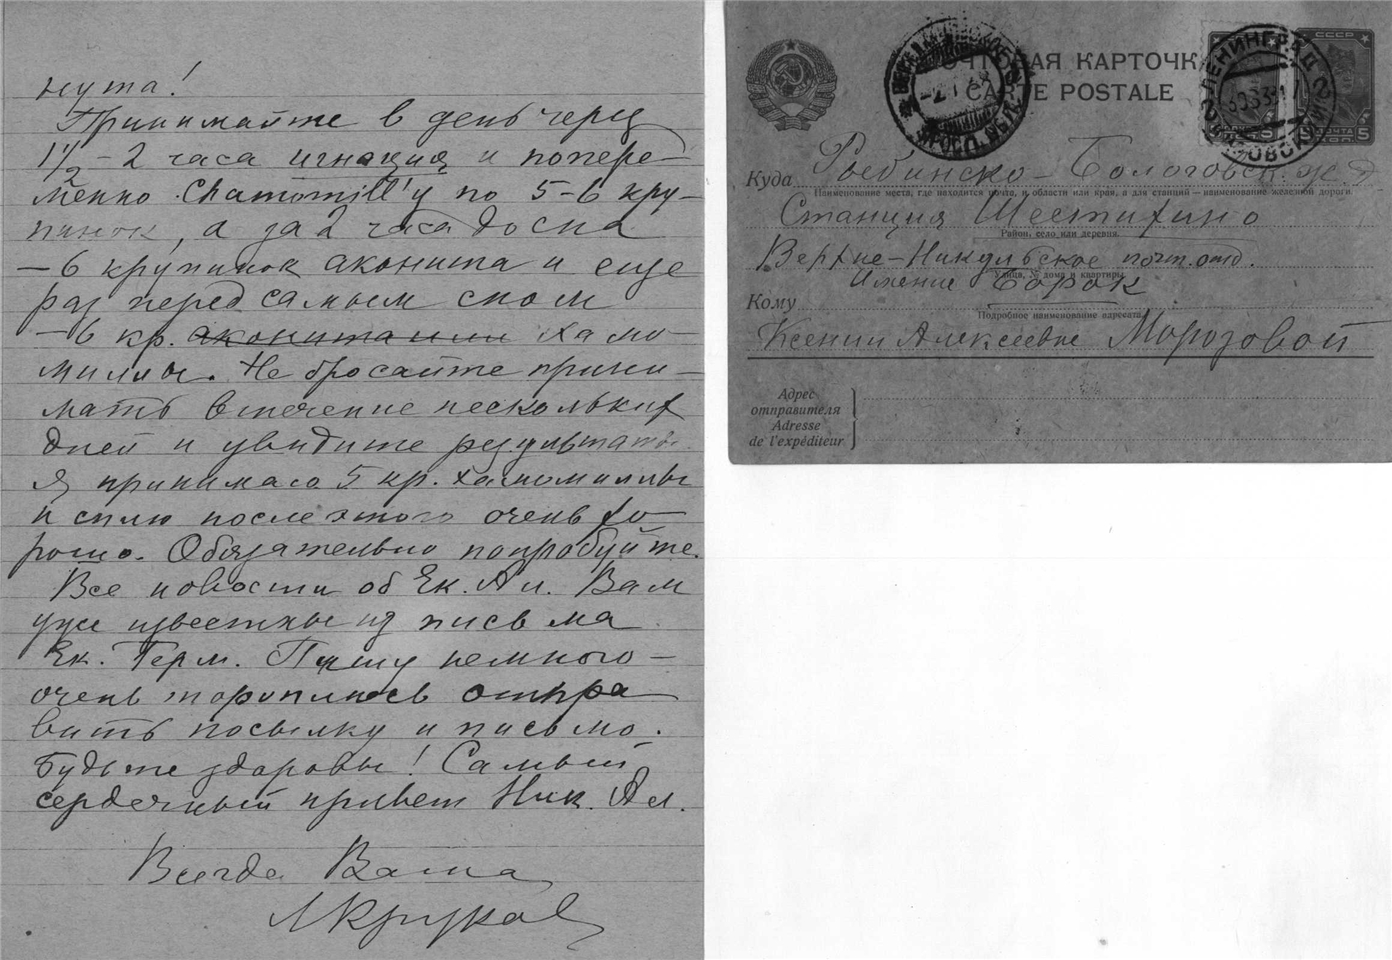 нута!
Принимайте в день через
1 1/2 – 2 часа игнация и попере-
менно Chamomill'у по 5–6 кру-
пинок, а за 2 часа до сна
– 6 крупинок аконита и еще
раз перед самым сном
– 6 кр. аконита или хамо-
миллы. Не бросайте прини-
мать в течение нескольких
дней и увидите результаты.
Я принимаю 5 кр. хамомиллы
и сплю после этого очень хо-
рошо. Обязательно попробуйте.
Все новости об Ек. Ал. Вам
уже известны из письма
Ек. Герм. Пишу немного –
очень тороплюсь отпра
вить посылку и письмо.
Будьте здоровы! Самый
сердечный привет Ник. Ал.
Всегда Ваша
ЛКрукова
ПОЧТОВАЯ КАРТОЧКА
CARTE POSTALE
СССР
ПОЧТА
5
5
ЛЕНИНГРАД
Куда Рыбинско-Бологовск. ж д
Наименование места, где находится почта, и области или края, а для станций — наименование железной дороги.
Станция Шестихино
Район, село или деревня.
Верхне-Никульское почт. отд.
Улица, № дома и квартиры.
Имение Борок
Кому
Подробное наименование адресата.
Ксении Алексеевне Морозовой
Адрес
отправителя
Adresse
de l'expéditeur